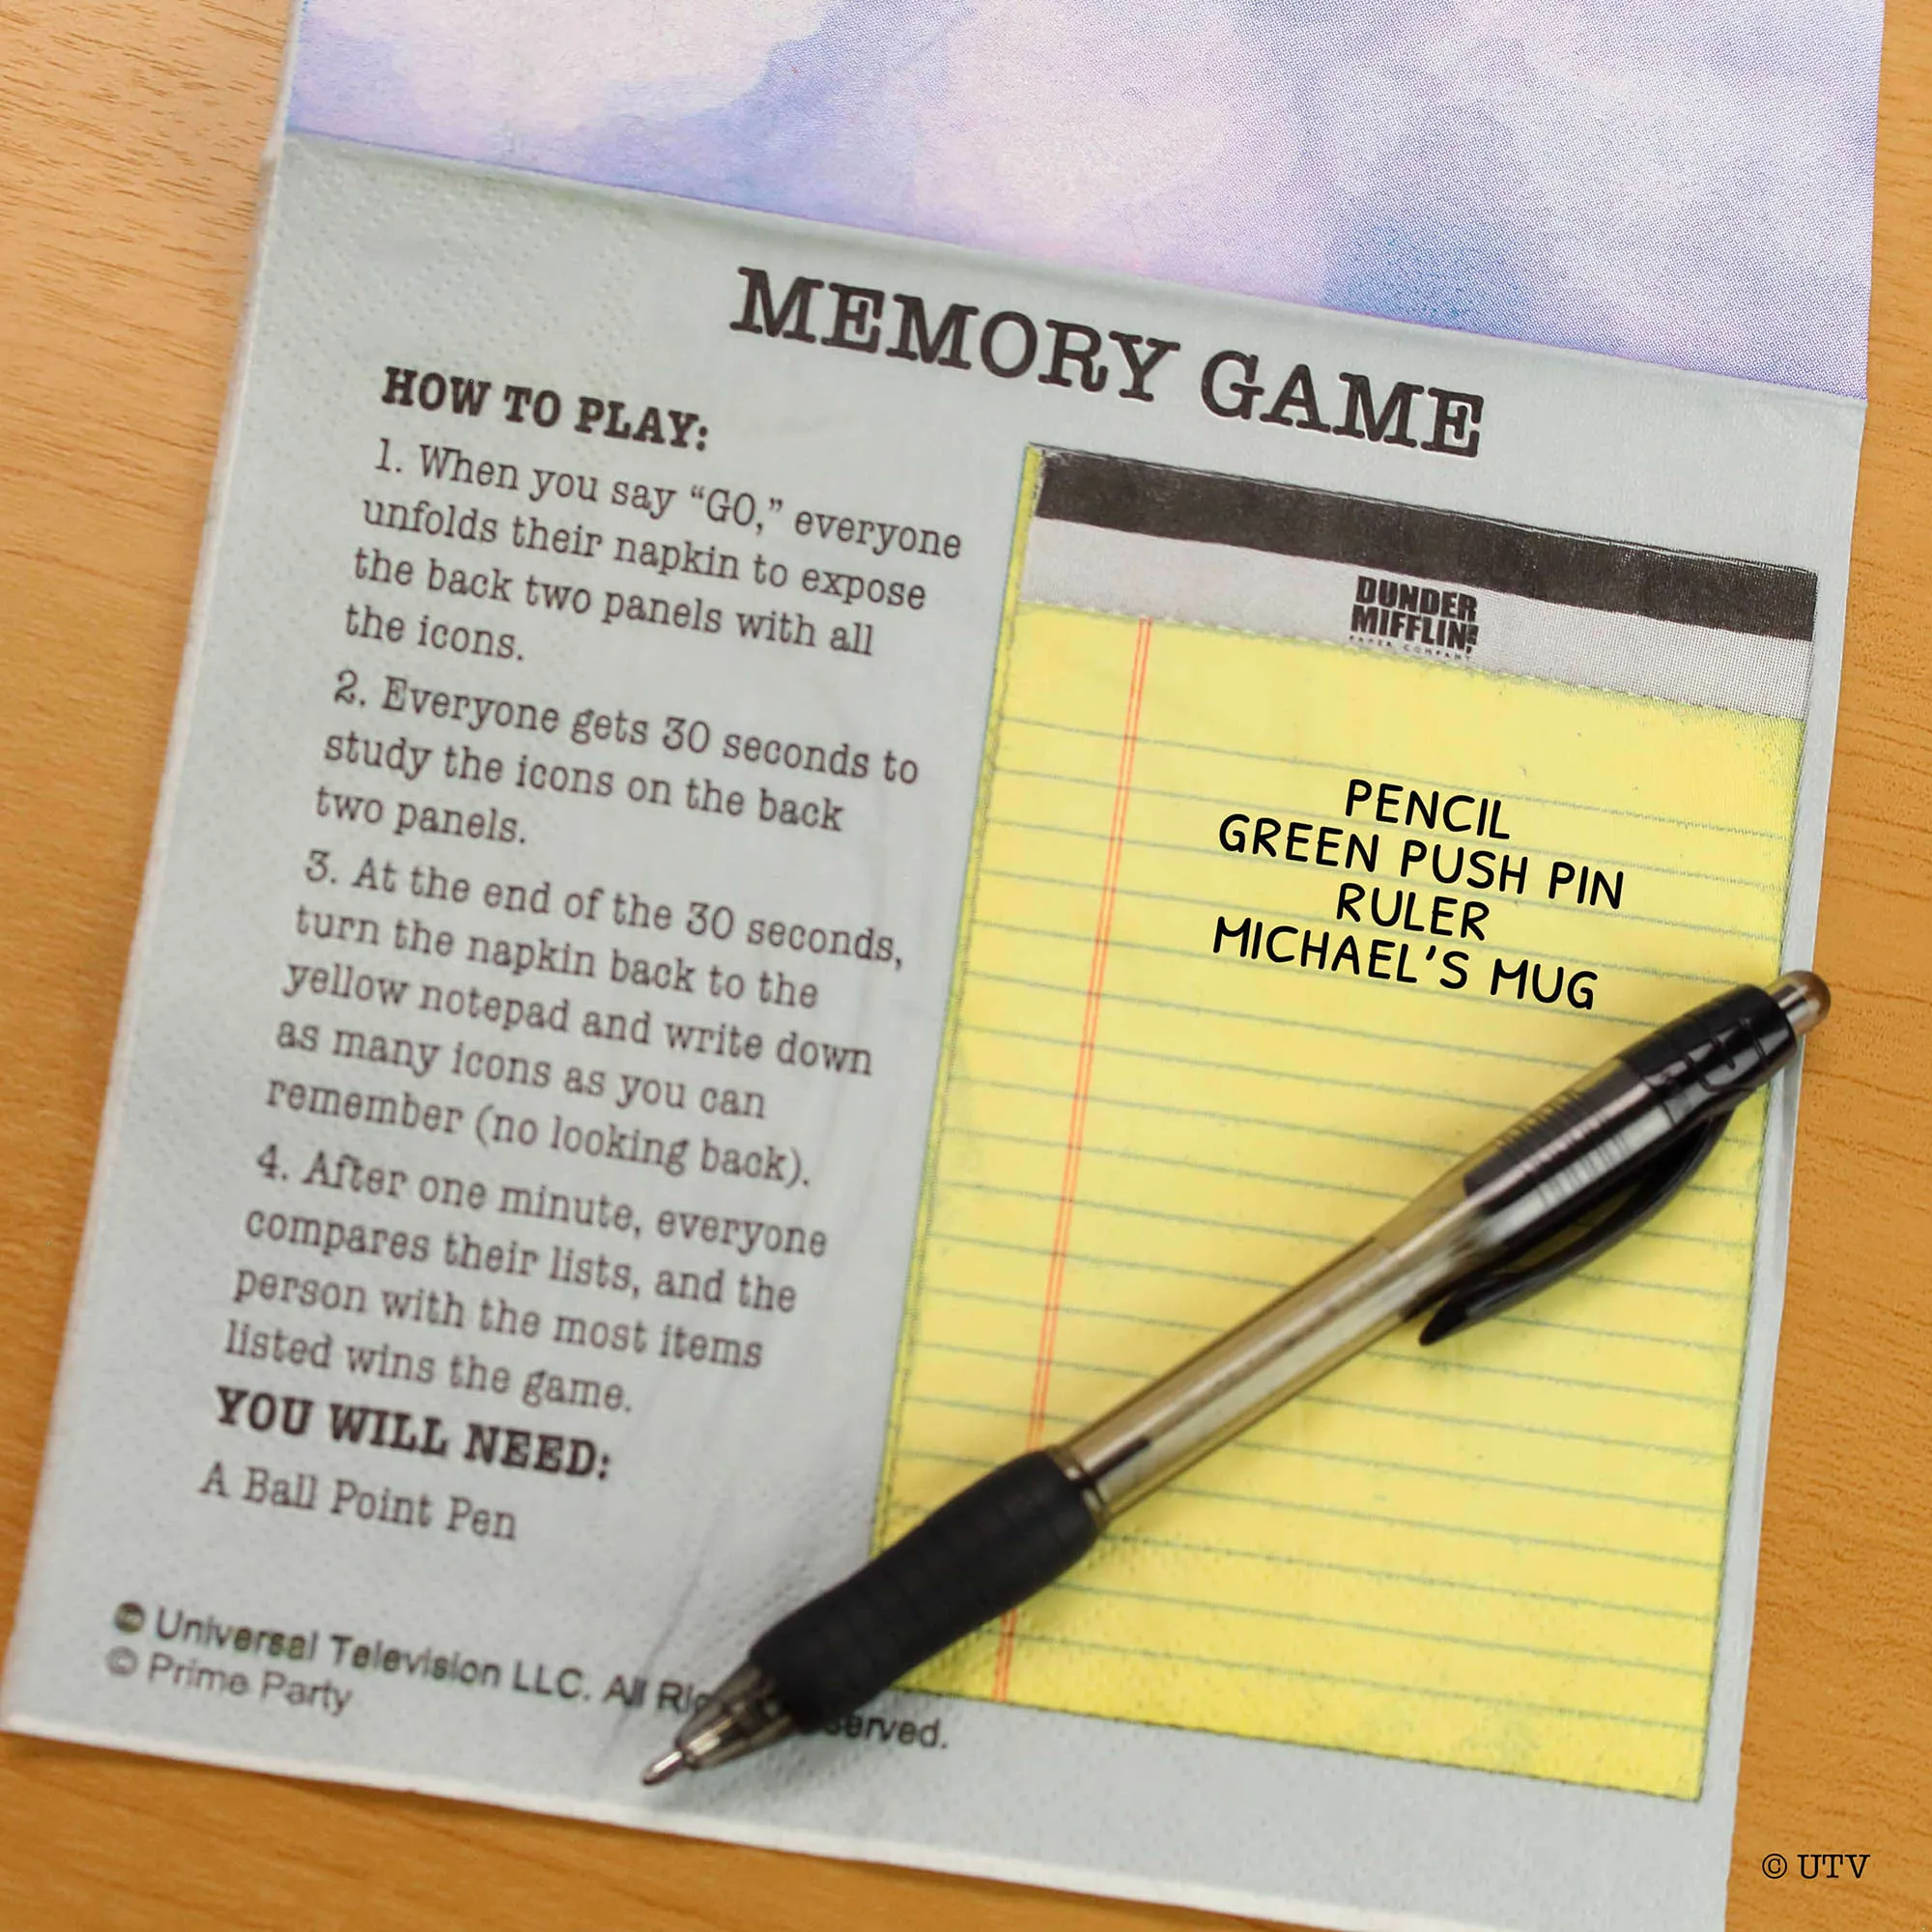 MEMORY GAME
HOW TO PLAY:
1. When you say “GO,” everyone
unfolds their napkin to expose
the back two panels with all
the icons.
2. Everyone gets 30 seconds to
study the icons on the back
two panels.
3. At the end of the 30 seconds,
turn the napkin back to the
yellow notepad and write down
as many icons as you can
remember (no looking back).
4. After one minute, everyone
compares their lists, and the
person with the most items
listed wins the game.
YOU WILL NEED:
A Ball Point Pen
© Universal Television LLC. All
© Prime Party
DUNDER
MIFFLIN
PAPER COMPANY
PENCIL
GREEN PUSH PIN
RULER
MICHAEL’S MUG
© UTV